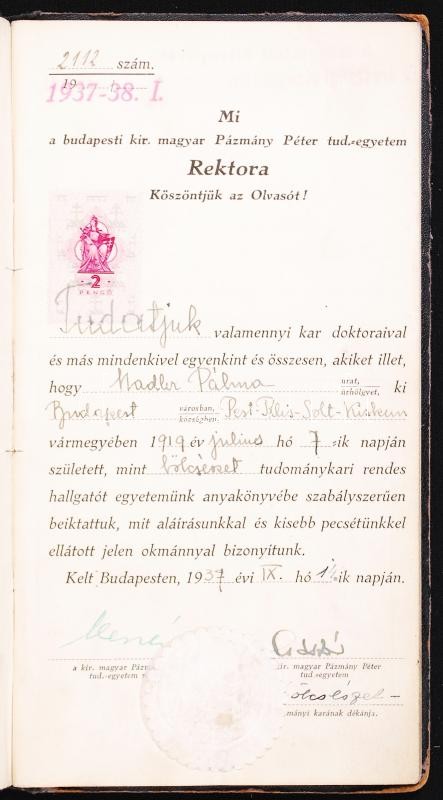 2112 szám.
19
1937-38. I.
Mi
a budapesti kir. magyar Pázmány Péter tud.-egyetem
Rektora
Köszöntjük az Olvasót!
2
PENGŐ
Tudatjuk valamennyi kar doktoraival
és más mindenkivel egyenkint és összesen, akiket illet,
hogy Nadler Pálma urat, úrhölgyet, ki
Budapest városban, községben, Pest-Pilis-Solt-Kiskun
vármegyében 1919 év július hó 7-ik napján
született, mint bölcsészet tudománykari rendes
hallgatót egyetemünk anyakönyvébe szabályszerűen
beiktattuk, mit aláírásunkkal és kisebb pecsétünkkel
ellátott jelen okmánnyal bizonyitunk.
Kelt Budapesten, 1937 évi IX. hó ik napján.
a kir. magyar Pázm
tud.-egyetem
ir. magyar Pázmány Péter
tud.-egyetem
ölcsészet-
mányi karának dékánja.